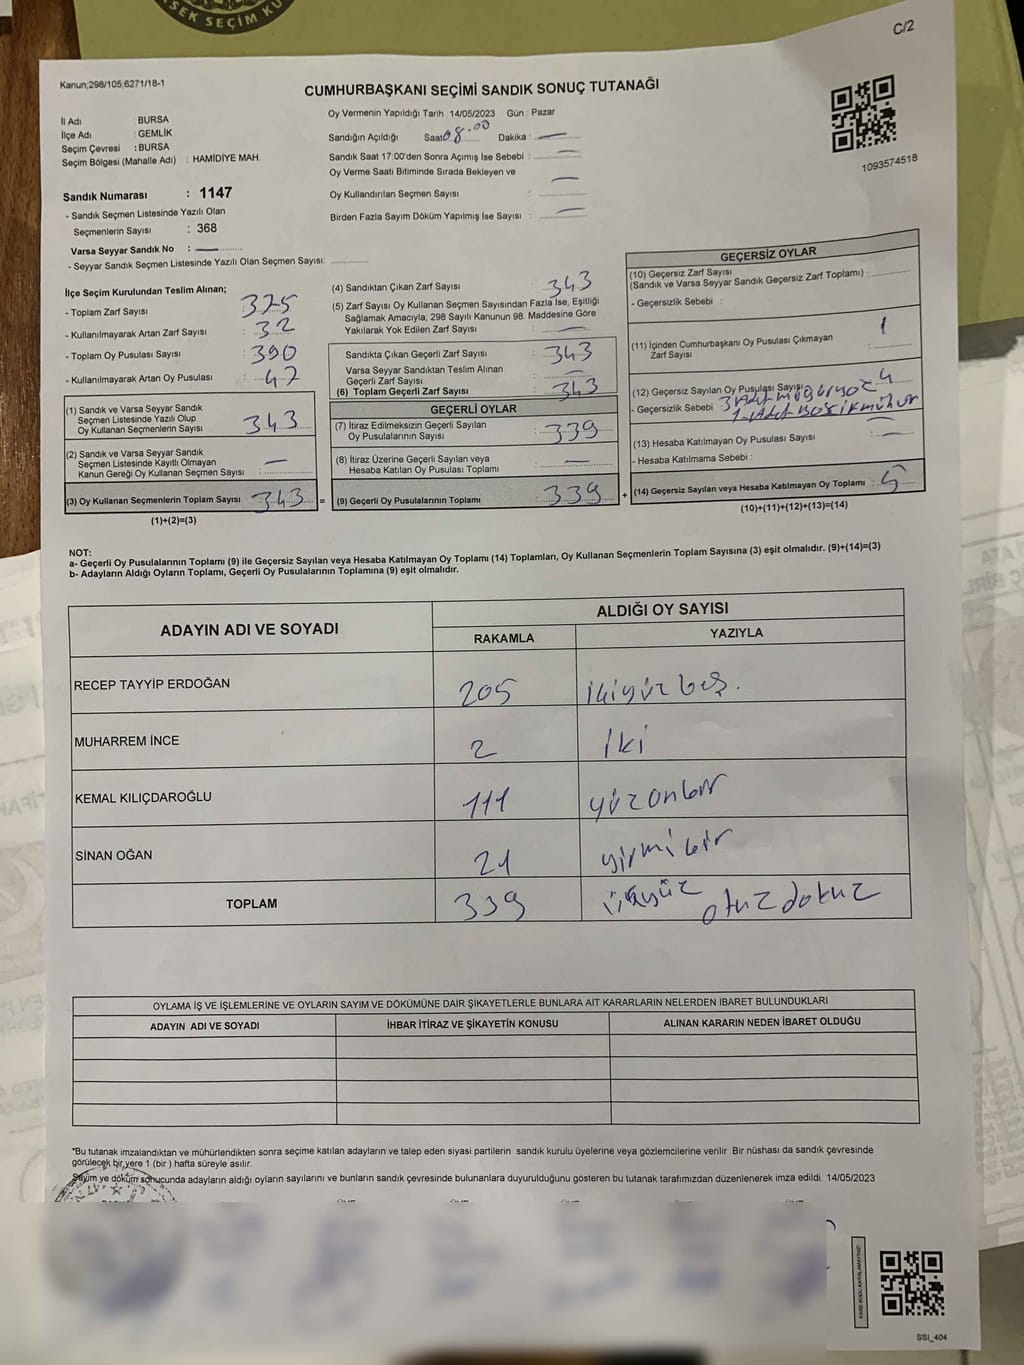 SEK SEÇİM KU
C/2
Kanun;298/105,6271/18-1
CUMHURBAŞKANI SEÇİMİ SANDIK SONUÇ TUTANAĞI
İl Adı : BURSA
İlçe Adı : GEMLİK
Seçim Çevresi : BURSA
Seçim Bölgesi (Mahalle Adı) : HAMİDİYE MAH.
Oy Vermenin Yapıldığı Tarih : 14/05/2023 Gün : Pazar
Sandığın Açıldığı Saat 08.00 Dakika : —
Sandık Saat 17:00'den Sonra Açımış İse Sebebi : —
Oy Verme Saati Bitiminde Sırada Bekleyen ve
Oy Kullandırılan Seçmen Sayısı : —
Birden Fazla Sayım Döküm Yapılmış İse Sayısı : —
1093574518
Sandık Numarası : 1147
- Sandık Seçmen Listesinde Yazılı Olan
Seçmenlerin Sayısı : 368
Varsa Seyyar Sandık No : —
- Seyyar Sandık Seçmen Listesinde Yazılı Olan Seçmen Sayısı:
İlçe Seçim Kurulundan Teslim Alınan;
- Toplam Zarf Sayısı : 375
- Kullanılmayarak Artan Zarf Sayısı : 32
- Toplam Oy Pusulası Sayısı : 390
- Kullanılmayarak Artan Oy Pusulası : 47
(1) Sandık ve Varsa Seyyar Sandık
Seçmen Listesinde Yazılı Olup
Oy Kullanan Seçmenlerin Sayısı : 343
(2) Sandık ve Varsa Seyyar Sandık
Seçmen Listesinde Kayıtlı Olmayan
Kanun Gereği Oy Kullanan Seçmen Sayısı : —
(3) Oy Kullanan Seçmenlerin Toplam Sayısı 343 =
(1)+(2)=(3)
(4) Sandıktan Çıkan Zarf Sayısı : 343
(5) Zarf Sayısı Oy Kullanan Seçmen Sayısından Fazla İse, Eşitliği
Sağlamak Amacıyla; 298 Sayılı Kanunun 98. Maddesine Göre
Yakılarak Yok Edilen Zarf Sayısı : —
Sandıkta Çıkan Geçerli Zarf Sayısı : 343
Varsa Seyyar Sandıktan Teslim Alınan
Geçerli Zarf Sayısı : —
(6) Toplam Geçerli Zarf Sayısı : 343
GEÇERLİ OYLAR
(7) İtiraz Edilmeksizin Geçerli Sayılan
Oy Pusulalarının Sayısı : 339
(8) İtiraz Üzerine Geçerli Sayılan veya
Hesaba Katılan Oy Pusulası Toplamı : —
(9) Geçerli Oy Pusulalarının Toplamı : 339 +
GEÇERSİZ OYLAR
(10) Geçersiz Zarf Sayısı
(Sandık ve Varsa Seyyar Sandık Geçersiz Zarf Toplamı) :
- Geçersizlik Sebebi :
(11) İçinden Cumhurbaşkanı Oy Pusulası Çıkmayan
Zarf Sayısı : 1
(12) Geçersiz Sayılan Oy Pusulası Sayısı : 4
- Geçersizlik Sebebi 3 Adet
1. Adet
(13) Hesaba Katılmayan Oy Pusulası Sayısı : —
- Hesaba Katılmama Sebebi :
(14) Geçersiz Sayılan veya Hesaba Katılmayan Oy Toplamı : 5
(10)+(11)+(12)+(13)=(14)
NOT:
a- Geçerli Oy Pusulalarının Toplamı (9) ile Geçersiz Sayılan veya Hesaba Katılmayan Oy Toplamı (14) Toplamları, Oy Kullanan Seçmenlerin Toplam Sayısına (3) eşit olmalıdır. (9)+(14)=(3)
b- Adayların Aldığı Oyların Toplamı, Geçerli Oy Pusulalarının Toplamına (9) eşit olmalıdır.
ADAYIN ADI VE SOYADI
ALDIĞI OY SAYISI
RAKAMLA YAZIYLA
RECEP TAYYİP ERDOĞAN 205 ikiyüz beş.
MUHARREM İNCE 2 iki
KEMAL KILIÇDAROĞLU 111 yüzonbir
SİNAN OĞAN 21 yirmibir
TOPLAM 339 üçyüz otuzdokuz
OYLAMA İŞ VE İŞLEMLERİNE VE OYLARIN SAYIM VE DÖKÜMÜNE DAİR ŞİKAYETLERLE BUNLARA AİT KARARLARIN NELERDEN İBARET BULUNDUKLARI
ADAYIN ADI VE SOYADI İHBAR İTİRAZ VE ŞİKAYETİN KONUSU ALINAN KARARIN NEDEN İBARET OLDUĞU
*Bu tutanak imzalandıktan ve mühürlendikten sonra seçime katılan adayların ve talep eden siyasi partilerin sandık kurulu üyelerine veya gözlemcilerine verilir .Bir nüshası da sandık çevresinde
görülecek bir yere 1 (bir ) hafta süreyle asılır.
Sayım ve döküm sonucunda adayların aldığı oyların sayılarını ve bunların sandık çevresinde bulunanlara duyurulduğunu gösteren bu tutanak tarafımızdan düzenlenerek imza edildi. 14/05/2023
KARE KODU KARALAMAYINIZ!
SSİ_404